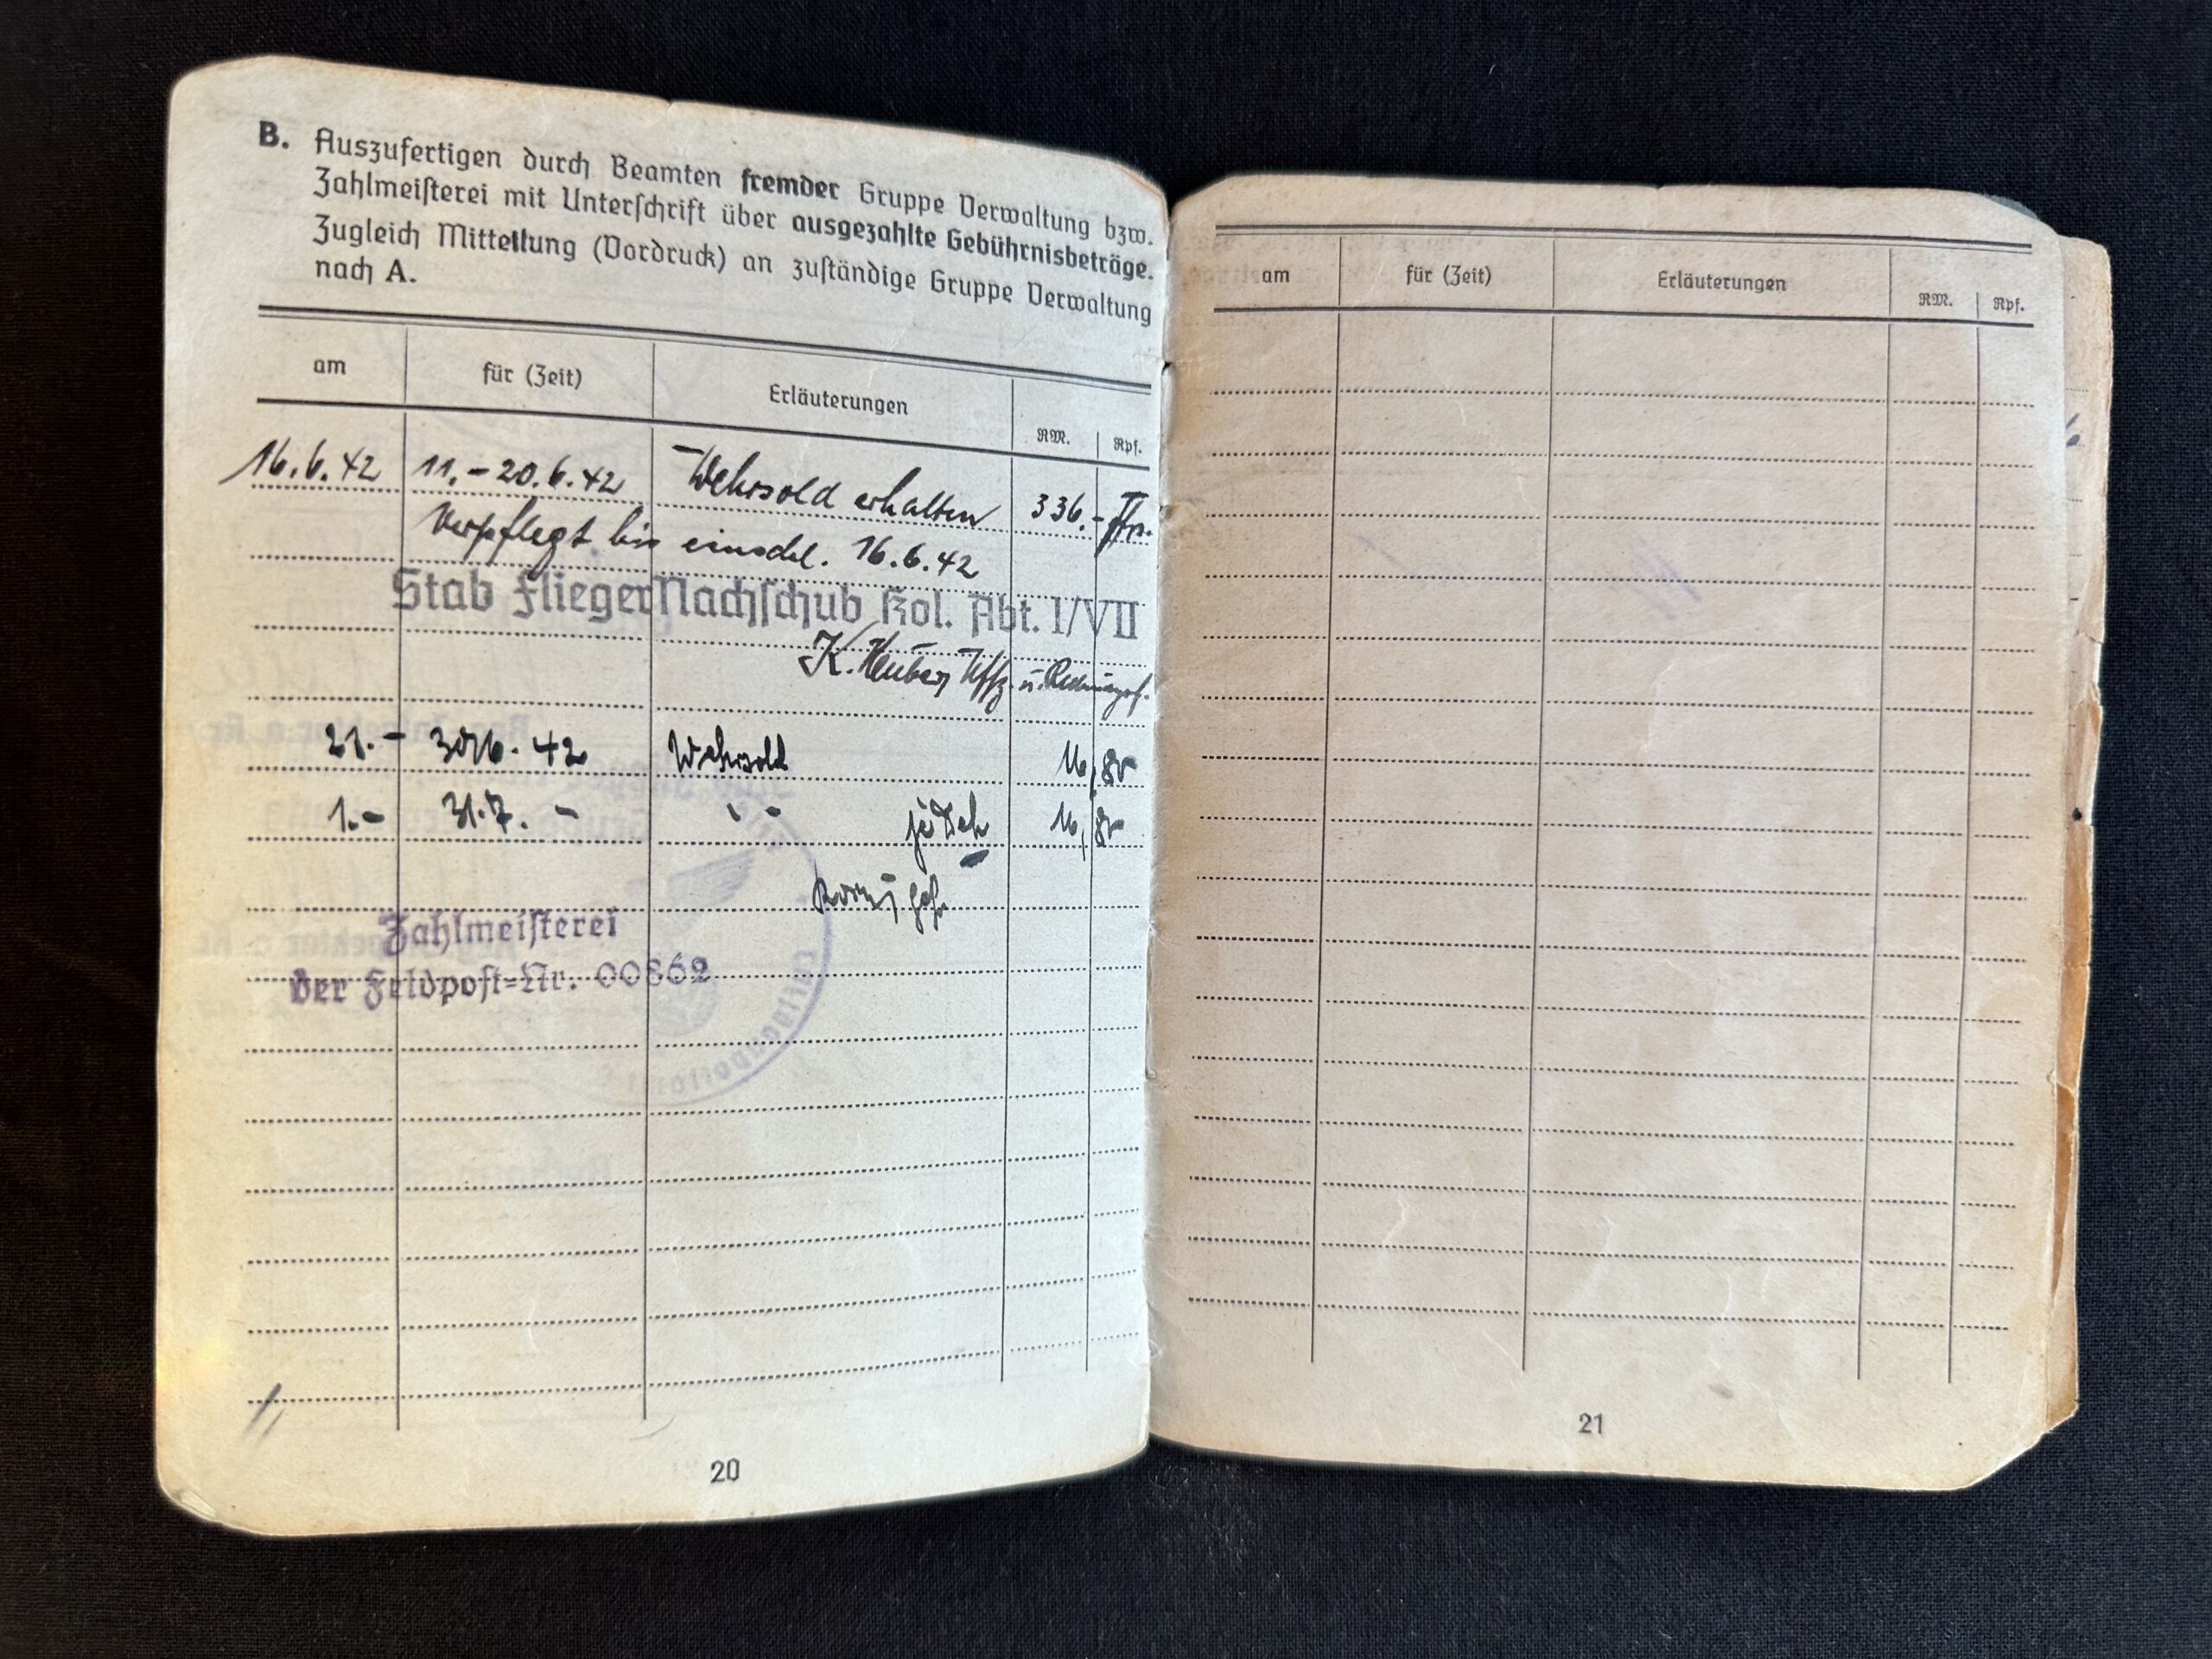 B. Auszufertigen durch Beamten fremder Gruppe Verwaltung bzw.
Zahlmeisterei mit Unterschrift über ausgezahlte Gebührnisbeträge.
Zugleich Mitteilung (Vordruck) an zuständige Gruppe Verwaltung
nach A.
am für (Zeit) Erläuterungen RM. Rpf.
16.6.42 11.-20.6.42 Wehrsold erhalten 336.-
Verpflegt bis einschl. 16.6.42
Stab Flieger Nachschub Kol. Abt. I/VII
K. Huber, Uffz. u.
21.- 30/6. 42 Wehrsold 16,80
1.- 31.7. - " - 16,80
Zahlmeisterei
der Feldpost-Nr. 00862
20
am für (Zeit) Erläuterungen RM. Rpf.
21